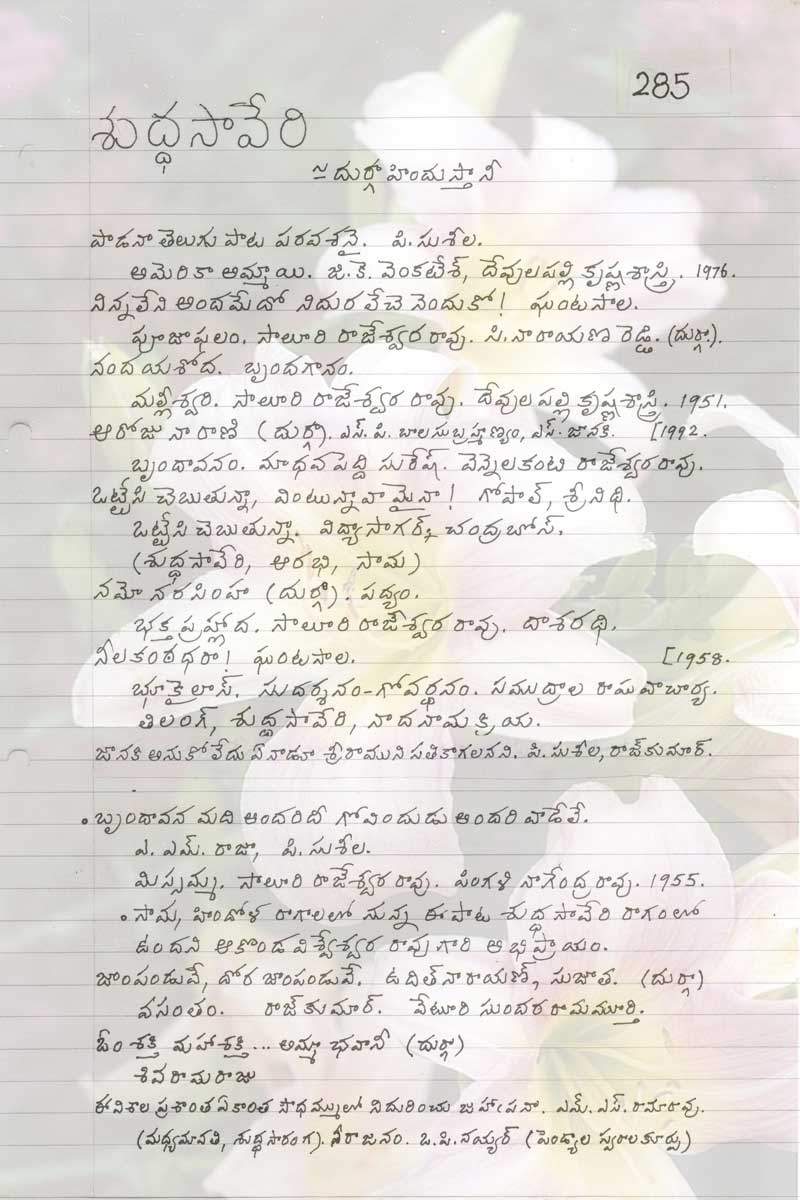 285
శుద్ధసావేరి
≃ దుర్గా హిందుస్తానీ
పాడనా తెలుగు పాట పరవశనై. పి.సుశీల.
అమెరికా అమ్మాయి. జి.కె.వెంకటేశ్, దేవులపల్లి కృష్ణశాస్త్రి. 1976.
నిన్నలేని అందమేదో నిదురలేచె నెందుకో! ఘంటసాల.
పూజాఫలం. సాలూరి రాజేశ్వరరావు. సి.నారాయణ రెడ్డి. (దుర్గా).
నంద యశోద. బృందగానం.
మల్లీశ్వరి. సాలూరి రాజేశ్వర రావు. దేవులపల్లి కృష్ణశాస్త్రి. 1951.
ఆ రోజు నా రాణి (దుర్గా). ఎస్.పి.బాలసుబ్రహ్మణ్యం, ఎస్.జానకి. [1992.
బృందావనం. మాధవపెద్ది సురేష్. వెన్నెలకంటి రాజేశ్వరరావు.
ఒట్టేసి చెబుతున్నా, వింటున్నావా మైనా! గోపాల్, శ్రీనిధి.
ఒట్టేసి చెబుతున్నా. విద్యాసాగర్, చంద్రబోస్.
(శుద్ధసావేరి, ఆరభి, సామ)
నమో నరసింహా (దుర్గా). పద్యం.
భక్త ప్రహ్లాద. సాలూరి రాజేశ్వర రావు. దాశరథి.
నీలకంఠథరా! ఘంటసాల. [1958.
భూకైలాస్. సుదర్శనం-గోవర్థనం. సముద్రాల రాఘవాచార్య.
తిలంగ్, శుద్ధసావేరి, నాదనామక్రియ.
జానకి అనుకోలేదు ఏనాడూ శ్రీరాముని సతికాగలనని. పి.సుశీల, రాజ్‌కుమార్.
• బృందావన మది అందరిదీ గోవిందుడు అందరి వాడేలే.
ఎ. ఎమ్. రాజా, పి. సుశీల.
మిస్సమ్మ. సాలూరి రాజేశ్వర రావు. పింగళి నాగేంద్రరావు. 1955.
• సామ, హిందోళ రాగాలలో నున్న ఈ పాట శుద్ధసావేరి రాగంలో
ఉందని ఆకొండ విశ్వేశ్వర రావు గారి అభిప్రాయం.
జాంపండువే, దోర జాంపండువే. ఉదిత్‌నారాయణ్, సుజాత. (దుర్గా)
వసంతం. రాజ్‌కుమార్. వేటూరి సుందర రామమూర్తి.
ఓం శక్తి మహాశక్తి... అమ్మా భవానీ (దుర్గా)
శివరామరాజు
ఈ విశాల ప్రశాంత ఏకాంత సౌధమ్ములో నిదురించు జహాపనా. ఎమ్. ఎస్. రామారావు.
(మధ్యమావతి, శుద్ధసారంగ). నీరాజనం. ఒ.పి.నయ్యర్ (పెండ్యాల స్వరాల కూర్పు)